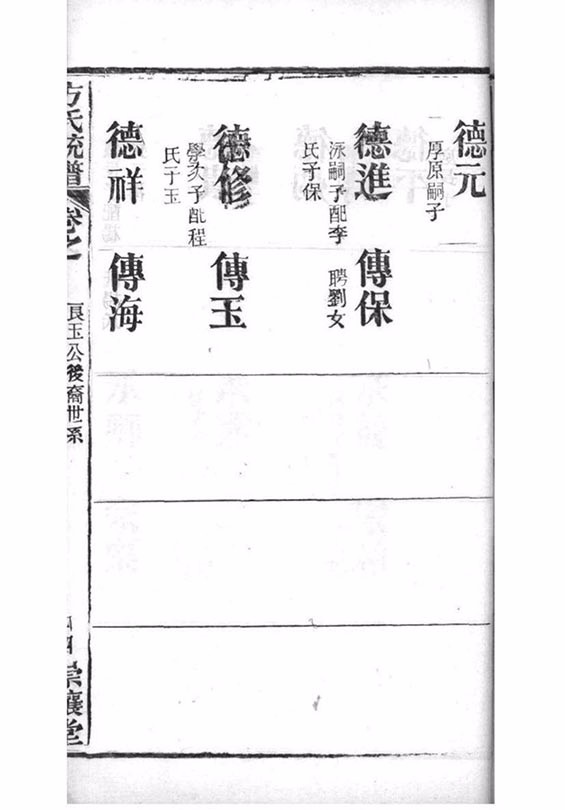 德元
厚原嗣子
德進 傳保
泳嗣子配李 聘劉女
氏子保
德修 傳玉
學次子配程
氏子玉
德祥 傳海
方氏統譜 卷之 良玉公後裔世系 崇讓堂